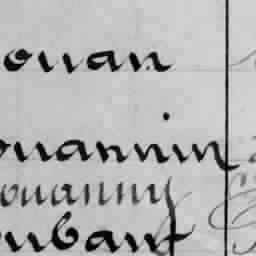 ouan
ouannin
ouanny
oubant